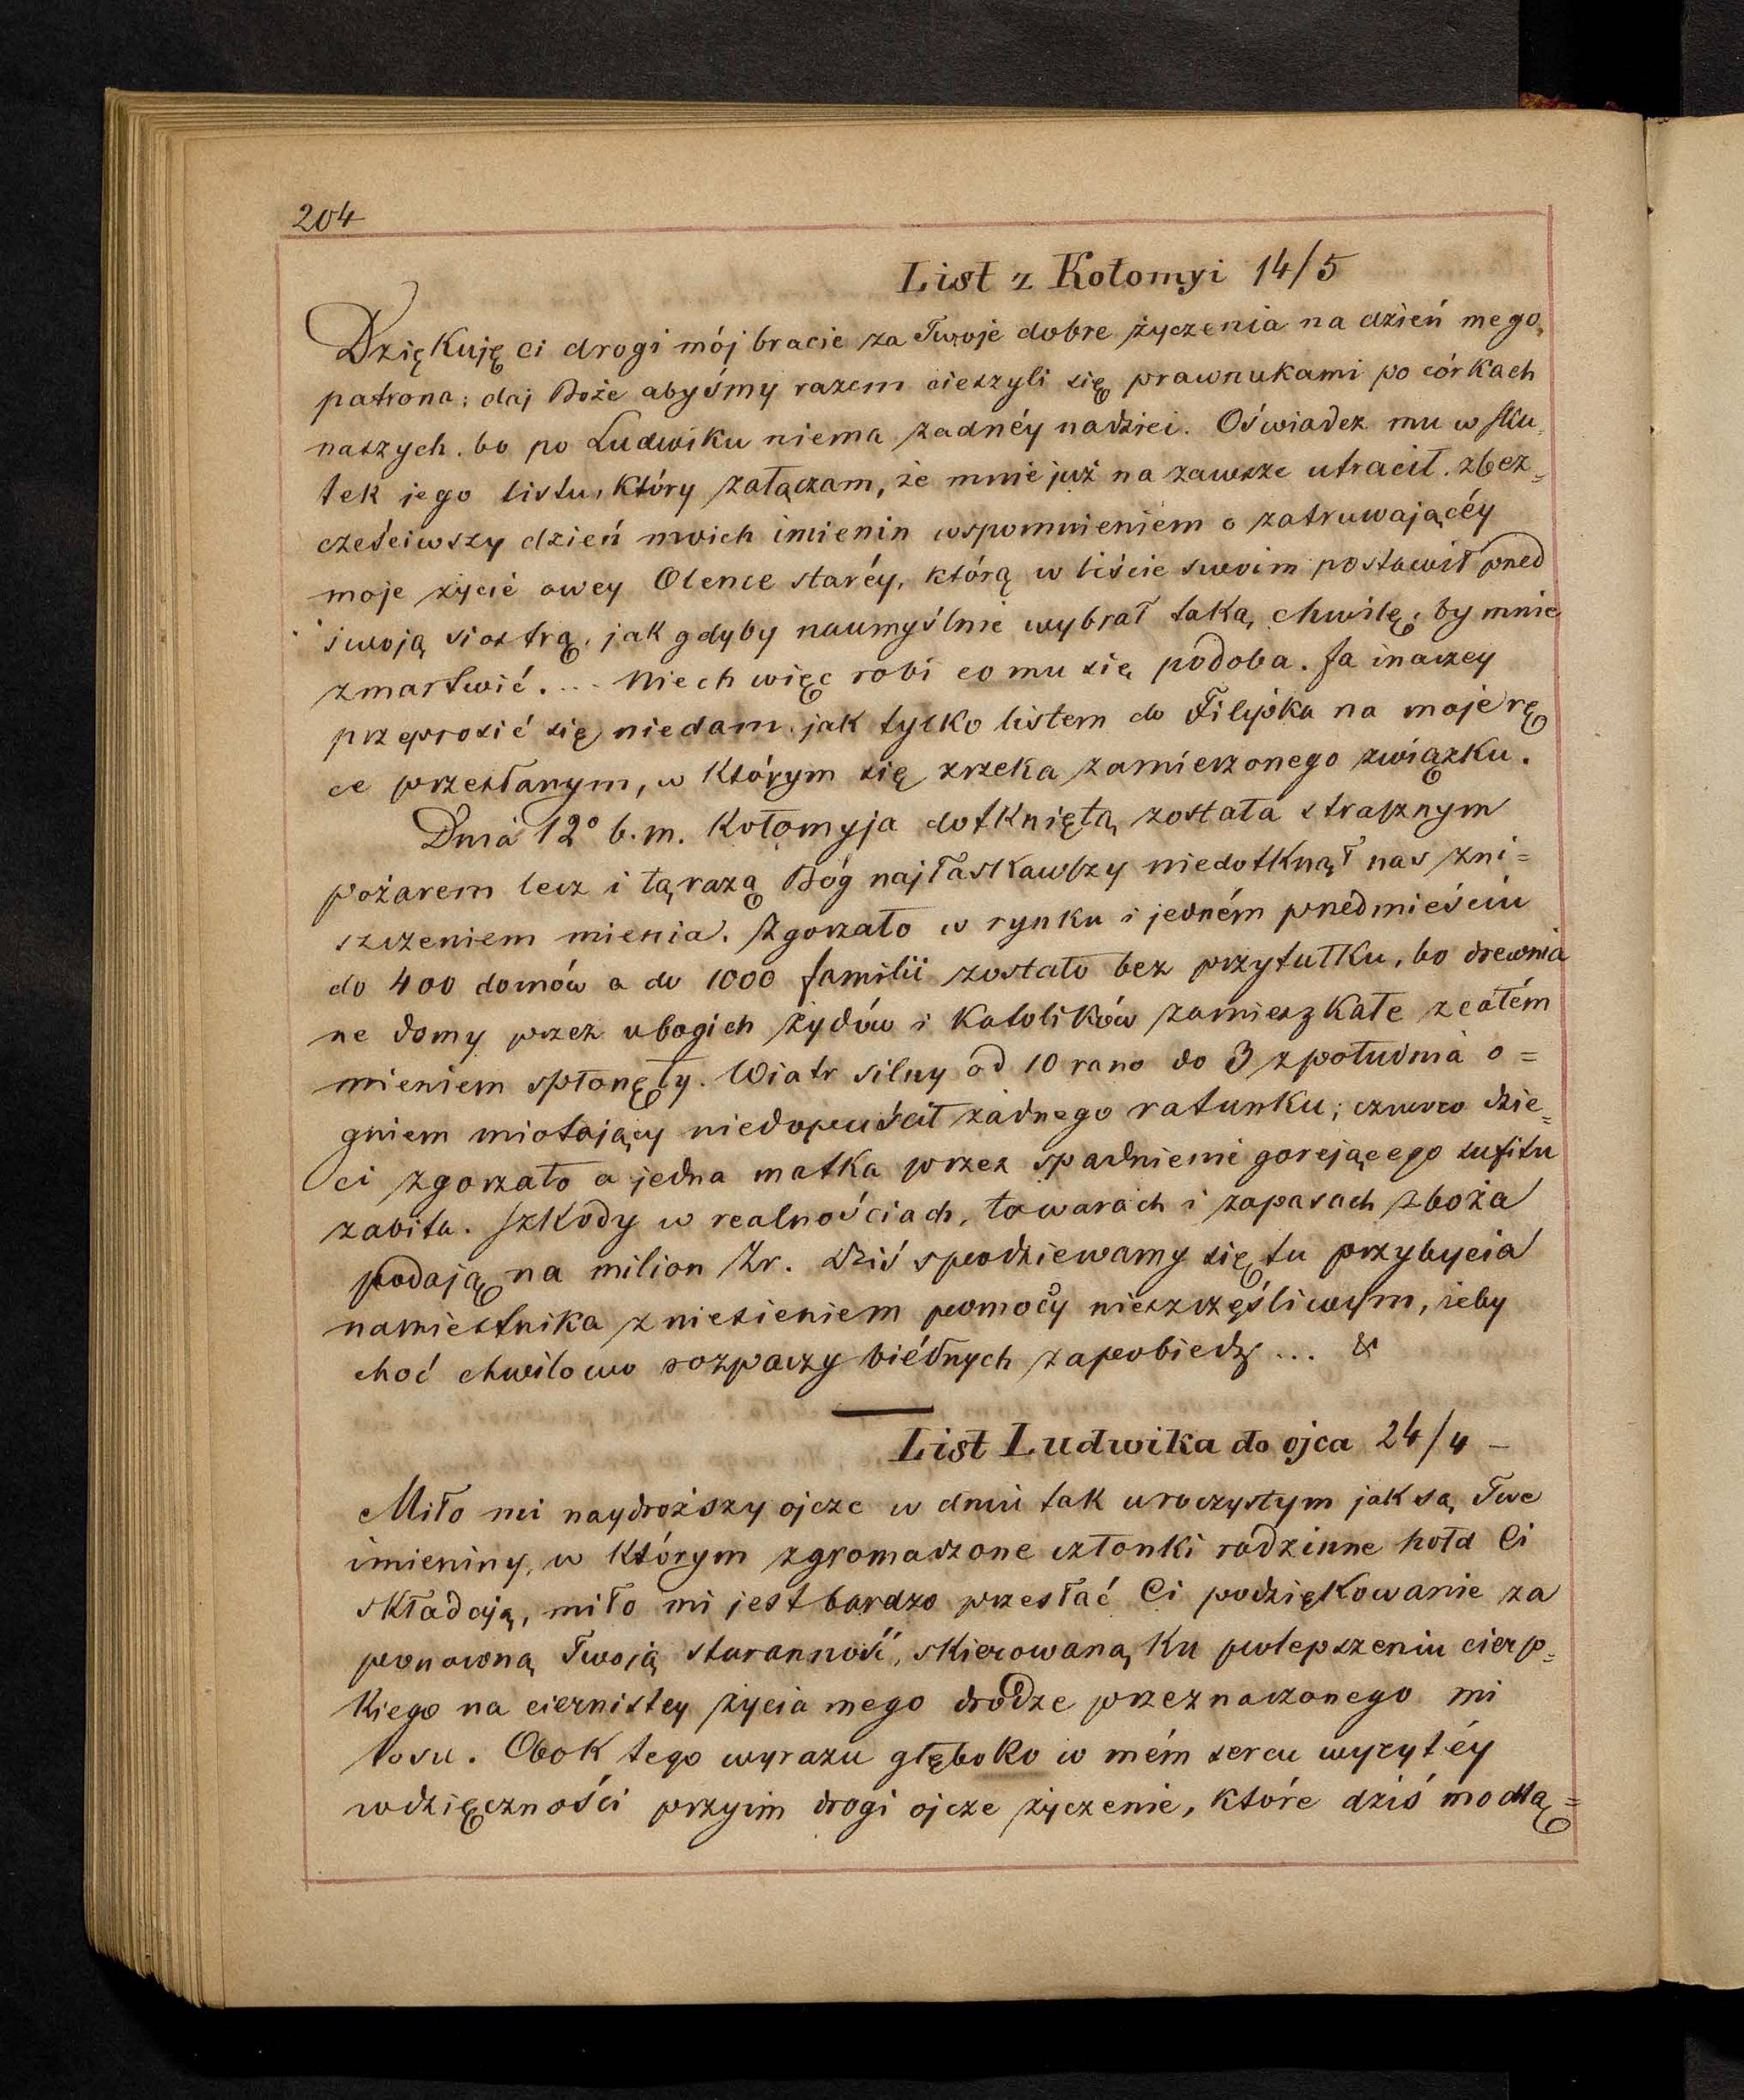 204
List z Kołomyi 14/5
Dziękuję ci drogi mój bracie za Twoje dobre życzenia na dzień mego
patrona; daj Boże abyśmy razem cieszyli się prawnukami po córkach
naszych. bo po Ludwiku niema żadnéy nadziei. Oświadcz mu w sku=
tek jego listu, który załączam, że mnie już na zawsze utracił. zbez=
cześciwszy dzień moich imienin wspomnieniem o zatruwającéy
moje życie owey Olence staréy, którą w liście swoim postawił przed
swoją siostrą, jak gdyby naumyślnie wybrał taką chwilę, by mnie
zmartwić. ... Niech więc robi co mu się podoba. Ja inaczey
przeprosić się niedam. jak tylko listem do Filipka na moje rę
ce przesłanym, w którym się zrzeka zamierzonego związku.
Dnia 12° b.m. Kołomyja dotkniętą została strasznym
pożarem lecz i tą razą Bóg najłaskawszy niedotknął nas zni=
szczeniem mienia. Zgorzało w rynku i jedném przedmieściu
do 400 domów a do 1000 familii zostało bez przytułku, bo drewnia
ne domy przez ubogich żydów i katolików zamieszkałe z całém
mieniem spłonęły. Wiatr silny od 10 rano do 3 z południa o=
gniem miotający niedopuścił żadnego ratunku; czworo dzie=
ci zgorzało a jedna matka przez spadnienie gorejącego sufitu
zabita. Szkody w realnościach, towarach i zapasach zboża
podają na milion Zr. Dziś spodziewamy się tu przybycia
namiestnika z niesieniem pomocy nieszczęśliwym, żeby
choć chwilowo rozpaczy biédnych zapobiedz ... &
List Ludwika do ojca 24/4 –
Miło mi naydroższy ojcze w dniu tak uroczystym jak są Twe
imieniny, w którym zgromadzone członki rodzinne hołd Ci
składają, miło mi jest bardzo przesłać Ci podziękowanie za
ponowną Twoją staranność, skierowaną ku polepszeniu cierp=
kiego na ciernistey życia mego drodze przeznaczonego mi
losu. Obok tego wyrazu głęboko w mém sercu wyrytéy
wdzięczności przyim drogi ojcze życzenie, które dziś modlą=